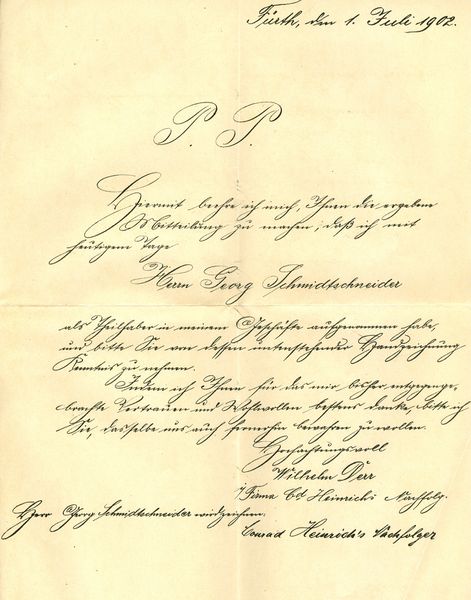 Fürth, den 1. Juli 1902.
P. P.
Hiermit beehre ich mich, Ihnen die ergebene
Mitteilung zu machen, daß ich mit
heutigem Tage
Herrn Georg Schmidtschneider
als Theilhaber in meinem Geschäfte aufgenommen habe,
und bitte Sie von dessen untenstehender Handzeichnung
Kenntnis zu nehmen.
Indem ich Ihnen für das mir bisher entgegenge-
brachte Vertrauen und Wohlwollen bestens danke, bitte ich
Sie, dasselbe uns auch fernerhin bewahren zu wollen.
Hochachtungsvoll
Wilhelm Derr
Firma Cd Heinrichs Nachfolg.
Herr Georg Schmidtschneider wird zeichnen:
Conrad Heinrich's Nachfolger